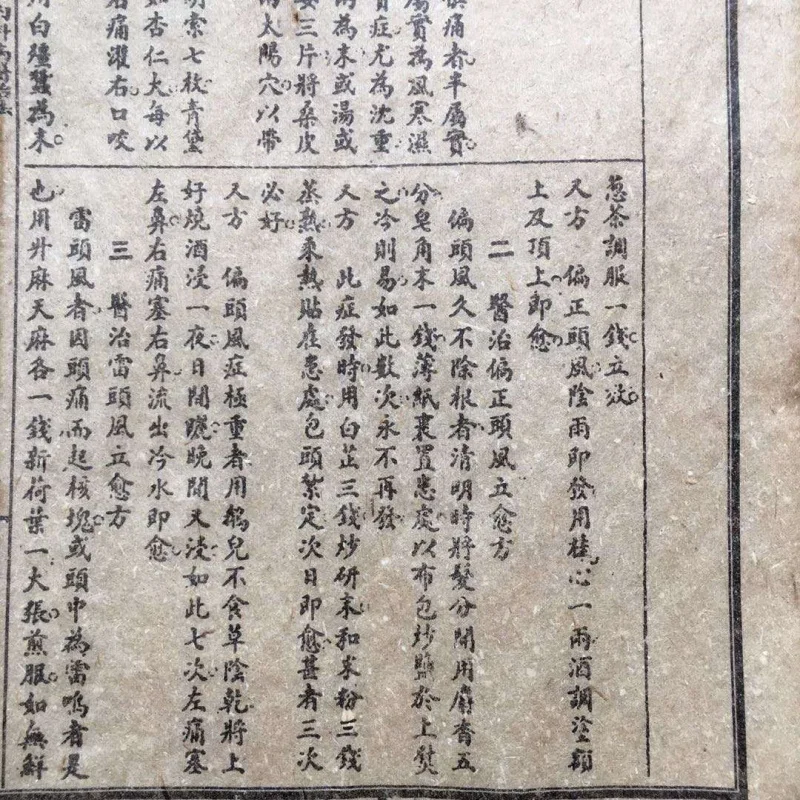 痛者半屬實
屬實為風寒濕
症尤為沈重
為末或湯或
三片將桑皮
太陽穴以帶
索七枚青黛
如杏仁大每以
右痛灌右口咬
用白殭蠶為末
葱茶調服一錢立效
又方　偏正頭風陰雨即發用桂心一兩酒調塗額
上及頂上即愈
二　醫治偏正頭風立愈方
偏頭風久不除根者清明時將髮分開用麝香五
分皂角末一錢薄紙裹置患處以布包炒鹽於上熨
之冷則易如此數次永不再發
又方　此症發時用白芷三錢炒研末和米粉三錢
蒸熟乘熱貼在患處包頭紮定次日即愈甚者三次
必好
又方　偏頭風症極重者用鵝兒不食草陰乾將上
好燒酒浸一夜日間曬晚間又浸如此七次左痛塞
左鼻右痛塞右鼻流出冷水即愈
三　醫治雷頭風立愈方
雷頭風者因頭痛而起核塊或頭中為雷鳴者是
也用升麻天麻各一錢新荷葉一大張煎服如無鮮